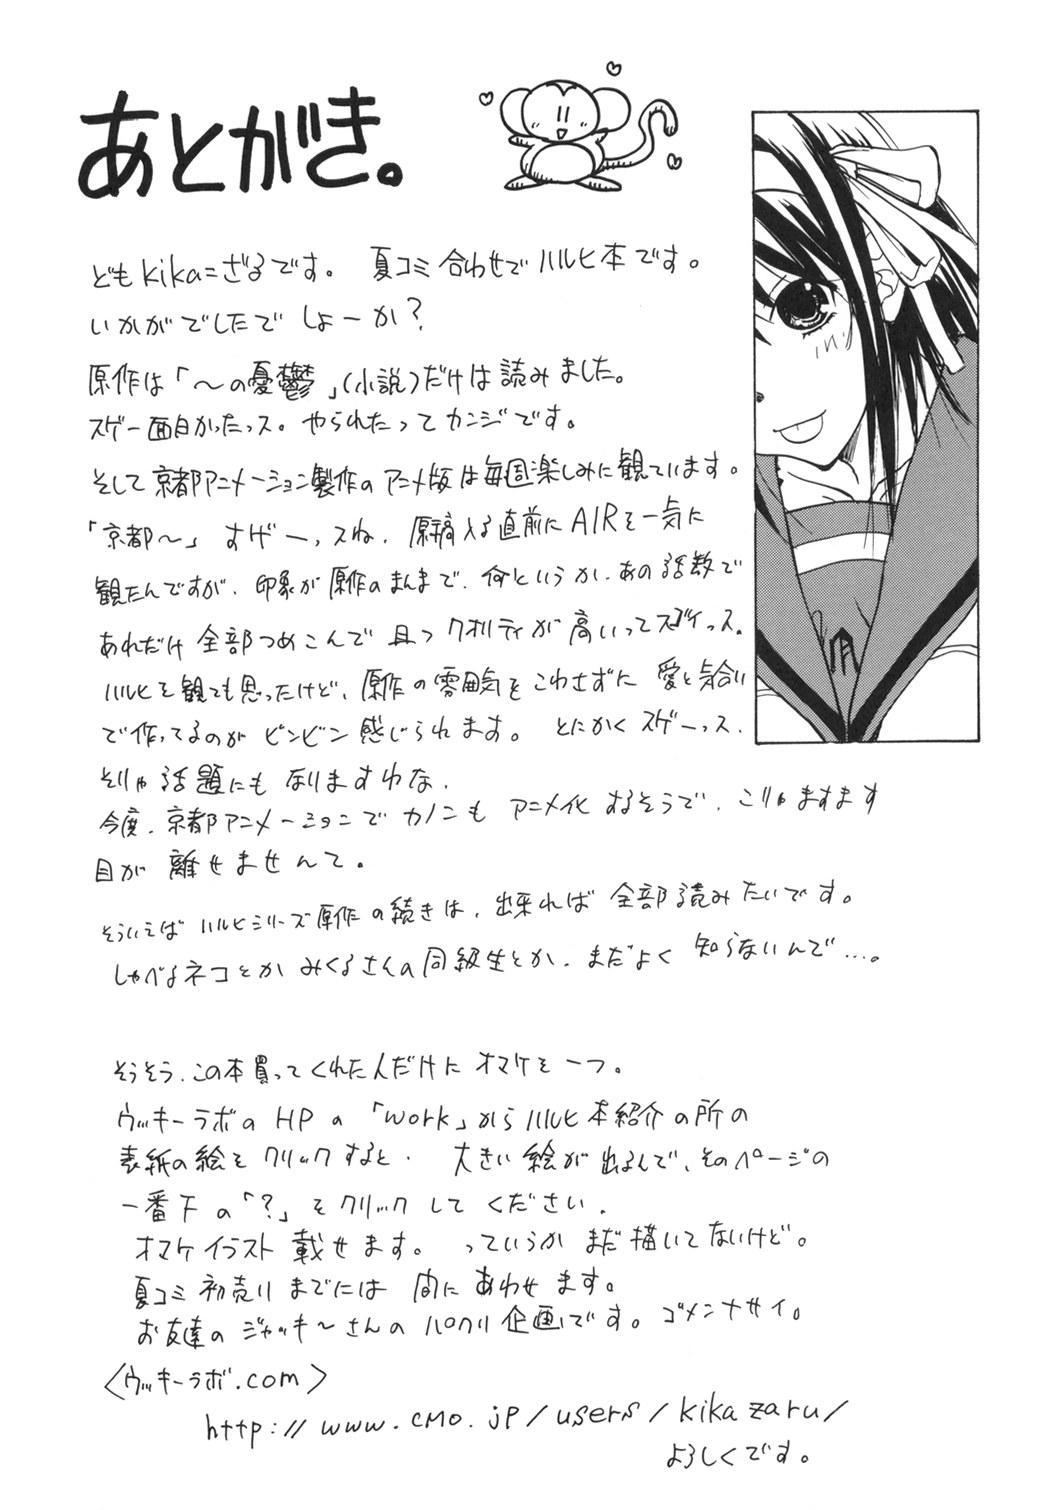 あとがき。
どもkikaニざるです。 夏コミ合わせでハルヒ本です。
いかがでしたでしょーか?
原作は「〜の憂鬱」(小説)だけは読みました。
スゲー面白かったっス。やられたってカンジです。
そして京都アニメーション製作のアニメ版は毎週楽しみに観ています。
「京都〜」すげーっスね、原稿入る直前にAIRを一気に
観たんですが、印象が原作のまんまで、何というか、あの話数で
あれだけ全部つめこんで且つクオリティが高いってスゴイっス。
ハルヒを観ても思ったけど、原作の雰囲気をこわさずに愛と気合い
で作ってるのがビンビン感じられます。 とにかくスゲーっス、
そりゃ話題にもなりますわな、
今度、京都アニメーションでカノンもアニメ化するそうで、こりゃますます
目が離せませんて。
そういえばハルヒシリーズ原作の続きは、出来れば全部読みたいです。
しゃべるネコとかみくるさんの同級生とか、まだよく知らないんで…。
そうそう、この本買ってくれた人だけにオマケを一つ。
ウッキーラボのHPの「work」からハルヒ本紹介の所の
表紙の絵をクリックすると、 大きい絵が出るんで、そのページの
一番下の「?」をクリックしてください、
オマケイラスト載せます。 っていうかまだ描いてないけど。
夏コミ初売りまでには間にあわせます。
お友達のジャッキ〜さんのパクリ企画です。ゴメンナサイ。
〈ウッキーラボ.com〉
http://www.cmo.jp/users/kikazaru/
よろしくです。